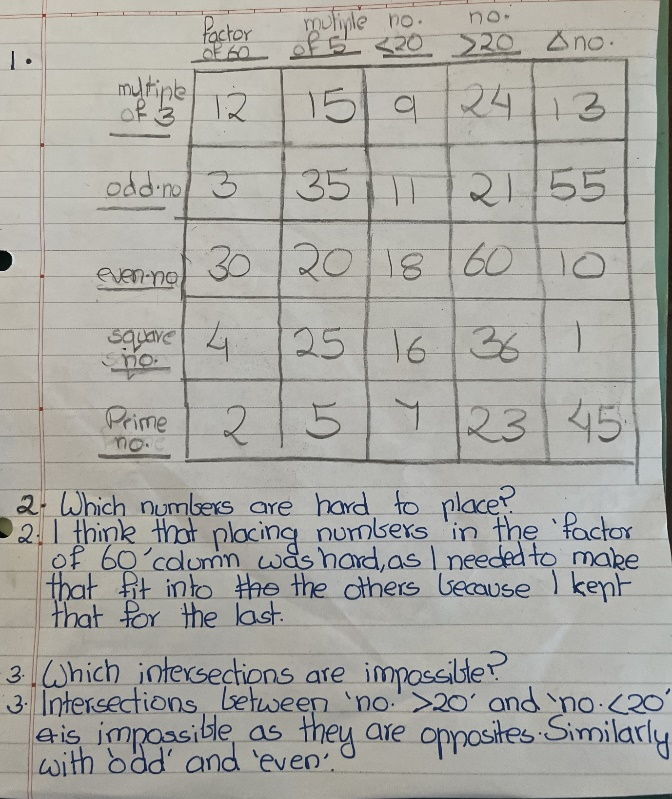 factor multiple no. no.
of 60 of 5 <20 >20 Δno.
1.
multiple
of 3 12 15 9 24 13
odd·no 3 35 11 21 55
even·no 30 20 18 60 10
square
no. 4 25 16 36 1
Prime
no. 2 5 7 23 45
2. Which numbers are hard to place?
2. I think that placing numbers in the 'factor
of 60' column was hard, as I needed to make
that fit into the the others because I kept
that for the last.
3. Which intersections are impossible?
3. Intersections between 'no. >20' and 'no. <20'
is impossible as they are opposites. Similarly
with 'odd' and 'even'.